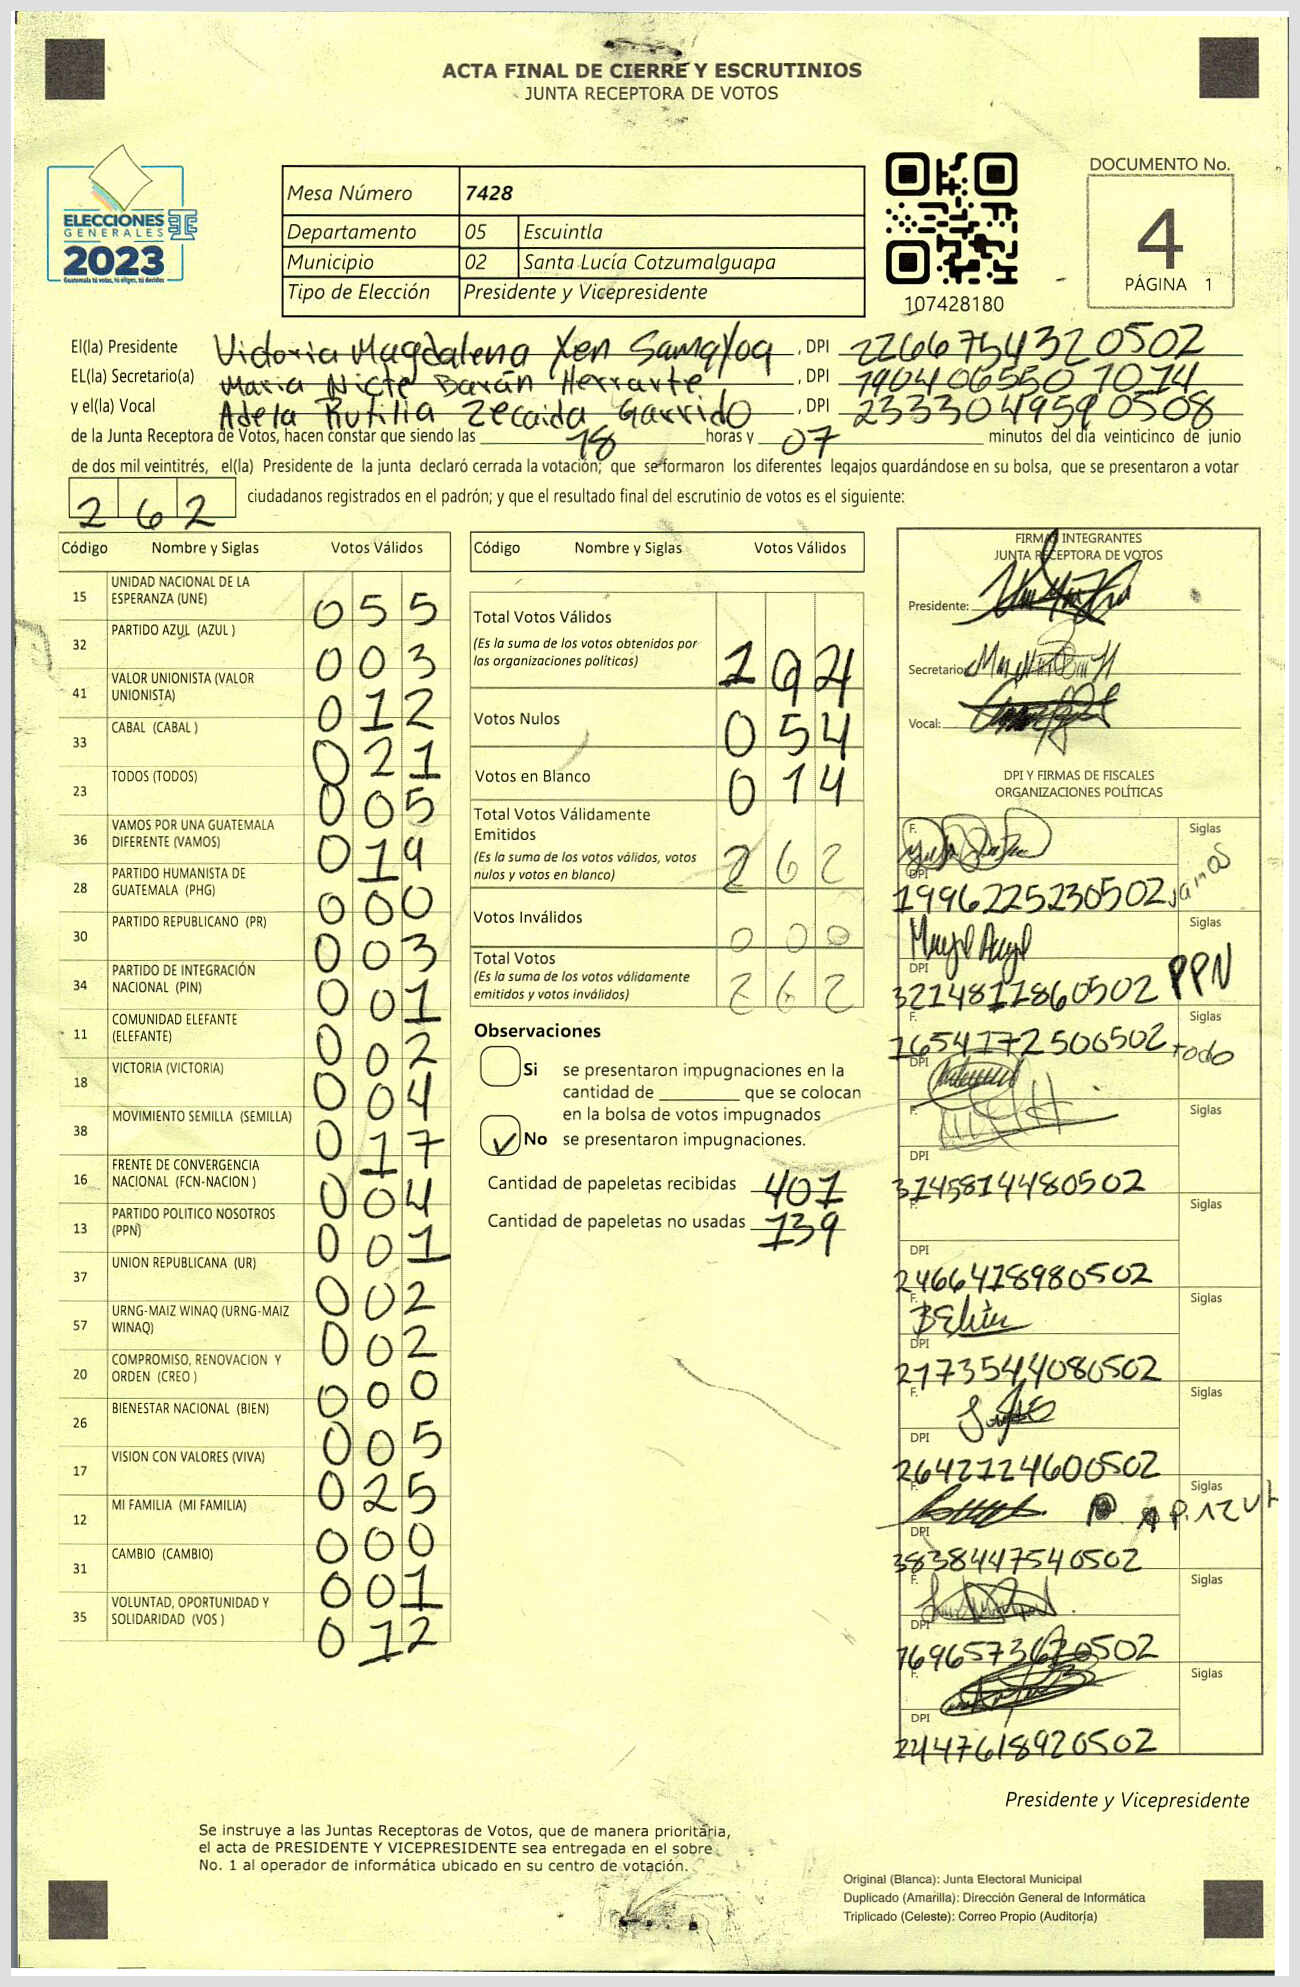 ACTA FINAL DE CIERRE Y ESCRUTINIOS
JUNTA RECEPTORA DE VOTOS
ELECCIONES
GENERALES
2023
Guatemala tú votas, tú eliges, tú decides
Mesa Número 7428
Departamento 05 Escuintla
Municipio 02 Santa Lucía Cotzumalguapa
Tipo de Elección Presidente y Vicepresidente
107428180
DOCUMENTO No.
4
PÁGINA 1
El(la) Presidente Victoria Magdalena Xen Samayoa, DPI 2266754320502
EL(la) Secretario(a) Maria Nicte Barán Herrarte, DPI 1904065501014
y el(la) Vocal Adela Rutilia Zecaida Garrido, DPI 2333049590508
de la Junta Receptora de Votos, hacen constar que siendo las 18 horas y 07 minutos del día veinticinco de junio
de dos mil veintitrés, el(la) Presidente de la junta declaró cerrada la votación; que se formaron los diferentes legajos guardándose en su bolsa, que se presentaron a votar
262 ciudadanos registrados en el padrón; y que el resultado final del escrutinio de votos es el siguiente:
Código Nombre y Siglas Votos Válidos
15 UNIDAD NACIONAL DE LA ESPERANZA (UNE) 055
32 PARTIDO AZUL (AZUL ) 003
41 VALOR UNIONISTA (VALOR UNIONISTA) 012
33 CABAL (CABAL ) 021
23 TODOS (TODOS) 005
36 VAMOS POR UNA GUATEMALA DIFERENTE (VAMOS) 019
28 PARTIDO HUMANISTA DE GUATEMALA (PHG) 000
30 PARTIDO REPUBLICANO (PR) 003
34 PARTIDO DE INTEGRACIÓN NACIONAL (PIN) 001
11 COMUNIDAD ELEFANTE (ELEFANTE) 002
18 VICTORIA (VICTORIA) 004
38 MOVIMIENTO SEMILLA (SEMILLA) 017
16 FRENTE DE CONVERGENCIA NACIONAL (FCN-NACION ) 004
13 PARTIDO POLITICO NOSOTROS (PPN) 001
37 UNION REPUBLICANA (UR) 002
57 URNG-MAIZ WINAQ (URNG-MAIZ WINAQ) 002
20 COMPROMISO, RENOVACION Y ORDEN (CREO ) 000
26 BIENESTAR NACIONAL (BIEN) 005
17 VISION CON VALORES (VIVA) 025
12 MI FAMILIA (MI FAMILIA) 000
31 CAMBIO (CAMBIO) 001
35 VOLUNTAD, OPORTUNIDAD Y SOLIDARIDAD (VOS ) 012
Código Nombre y Siglas Votos Válidos
Total Votos Válidos 194
(Es la suma de los votos obtenidos por
las organizaciones políticas)
Votos Nulos 054
Votos en Blanco 014
Total Votos Válidamente
Emitidos 262
(Es la suma de los votos válidos, votos
nulos y votos en blanco)
Votos Inválidos 000
Total Votos 262
(Es la suma de los votos válidamente
emitidos y votos inválidos)
Observaciones
Si se presentaron impugnaciones en la
cantidad de ________ que se colocan
en la bolsa de votos impugnados
No se presentaron impugnaciones.
Cantidad de papeletas recibidas 401
Cantidad de papeletas no usadas 139
FIRMAS INTEGRANTES
JUNTA RECEPTORA DE VOTOS
Presidente:
Secretario:
Vocal:
DPI Y FIRMAS DE FISCALES
ORGANIZACIONES POLÍTICAS
F. Siglas
DPI
1996225230502
Siglas
DPI
3214811860502 PPN
F. Siglas
1654172500502 Todo
DPI
F. Siglas
DPI
3145814480502
F. Siglas
DPI
2466418980502
F. Siglas
DPI
2773544080502
F. Siglas
DPI
2642124600502
F. Siglas
P. AZUL
DPI
3838447540502
F. Siglas
DPI
1696573670502
F. Siglas
DPI
2447618920502
Presidente y Vicepresidente
Se instruye a las Juntas Receptoras de Votos, que de manera prioritaria,
el acta de PRESIDENTE Y VICEPRESIDENTE sea entregada en el sobre
No. 1 al operador de informática ubicado en su centro de votación.
Original (Blanca): Junta Electoral Municipal
Duplicado (Amarilla): Dirección General de Informática
Triplicado (Celeste): Correo Propio (Auditoría)